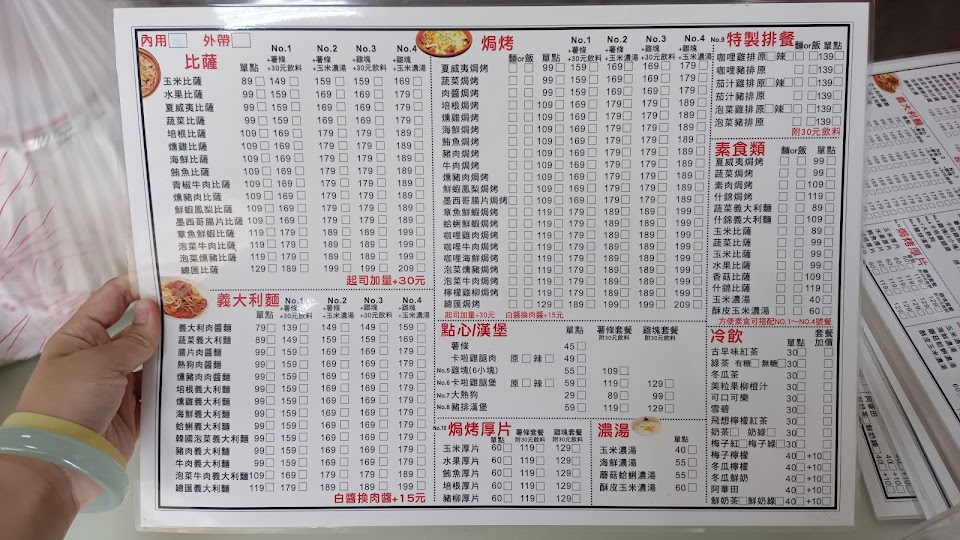 內用□ 外帶□
比薩 單點 No.1+薯條+30元飲料 No.2+薯條+玉米濃湯 No.3+雞塊+30元飲料 No.4+雞塊+玉米濃湯
玉米比薩 89□ 149□ 159□ 159□ 169□
水果比薩 99□ 159□ 169□ 169□ 179□
夏威夷比薩 99□ 159□ 169□ 169□ 179□
蔬菜比薩 99□ 159□ 169□ 169□ 179□
培根比薩 109□ 169□ 179□ 179□ 189□
燻雞比薩 109□ 169□ 179□ 179□ 189□
海鮮比薩 109□ 169□ 179□ 179□ 189□
鮪魚比薩 109□ 169□ 179□ 179□ 189□
青椒牛肉比薩 109□ 169□ 179□ 179□ 189□
燻豬肉比薩 109□ 169□ 179□ 179□ 189□
鮮蝦鳳梨比薩 109□ 169□ 179□ 179□ 189□
墨西哥腸片比薩 109□ 169□ 179□ 179□ 189□
章魚鮮蝦比薩 119□ 179□ 189□ 189□ 199□
泡菜牛肉比薩 119□ 179□ 189□ 189□ 199□
泡菜燻豬比薩 119□ 179□ 189□ 189□ 199□
總匯比薩 129□ 189□ 199□ 199□ 209□
起司加量+30元
義大利麵 單點 No.1+薯條+30元飲料 No.2+薯條+玉米濃湯 No.3+雞塊+30元飲料 No.4+雞塊+玉米濃湯
義大利肉醬麵 79□ 139□ 149□ 149□ 159□
蔬菜義大利麵 89□ 149□ 159□ 159□ 169□
腸片肉醬麵 99□ 159□ 169□ 169□ 179□
熱狗肉醬麵 99□ 159□ 169□ 169□ 179□
燻豬肉肉醬麵 99□ 159□ 169□ 169□ 179□
培根義大利麵 99□ 159□ 169□ 169□ 179□
燻雞義大利麵 99□ 159□ 169□ 169□ 179□
海鮮義大利麵 99□ 159□ 169□ 169□ 179□
蛤蜊義大利麵 99□ 159□ 169□ 169□ 179□
韓國泡菜義大利麵 99□ 159□ 169□ 169□ 179□
豬肉義大利麵 99□ 159□ 169□ 169□ 179□
牛肉義大利麵 99□ 159□ 169□ 169□ 179□
泡菜牛肉義大利麵 109□ 169□ 179□ 179□ 189□
總匯義大利麵 119□ 179□ 189□ 189□ 199□
白醬換肉醬+15元
焗烤 麵or飯 單點 No.1+薯條+30元飲料 No.2+薯條+玉米濃湯 No.3+雞塊+30元飲料 No.4+雞塊+玉米濃湯
夏威夷焗烤 □ □ 99□ 159□ 169□ 169□ 179□
蔬菜焗烤 □ □ 99□ 159□ 169□ 169□ 179□
肉醬焗烤 □ □ 99□ 159□ 169□ 169□ 179□
培根焗烤 □ □ 109□ 169□ 179□ 179□ 189□
燻雞焗烤 □ □ 109□ 169□ 179□ 179□ 189□
海鮮焗烤 □ □ 109□ 169□ 179□ 179□ 189□
鮪魚焗烤 □ □ 109□ 169□ 179□ 179□ 189□
豬肉焗烤 □ □ 109□ 169□ 179□ 179□ 189□
牛肉焗烤 □ □ 109□ 169□ 179□ 179□ 189□
燻豬肉焗烤 □ □ 109□ 169□ 179□ 179□ 189□
鮮蝦鳳梨焗烤 □ □ 109□ 169□ 179□ 179□ 189□
墨西哥腸片焗烤 □ □ 109□ 169□ 179□ 179□ 189□
章魚鮮蝦焗烤 □ □ 119□ 179□ 189□ 189□ 199□
蛤蜊鮮蝦焗烤 □ □ 119□ 179□ 189□ 189□ 199□
咖哩雞肉焗烤 □ □ 119□ 179□ 189□ 189□ 199□
咖哩牛肉焗烤 □ □ 119□ 179□ 189□ 189□ 199□
咖哩海鮮焗烤 □ □ 119□ 179□ 189□ 189□ 199□
泡菜燻豬焗烤 □ □ 119□ 179□ 189□ 189□ 199□
泡菜牛肉焗烤 □ □ 119□ 179□ 189□ 189□ 199□
檸檬雞柳焗烤 □ □ 119□ 179□ 189□ 189□ 199□
總匯焗烤 □ □ 129□ 189□ 199□ 199□ 209□
起司加量+30元 白醬換肉醬+15元
點心/漢堡 單點 薯條套餐附30元飲料 雞塊套餐附30元飲料
薯條 45□
卡啦雞腿肉 原□ 辣□ 49□
No.5 雞塊(6小塊) 55□ 109□
No.6 卡啦雞腿堡 原□ 辣□ 59□ 119□ 129□
No.7 大熱狗 29□ 89□ 99□
No.8 豬排漢堡 59□ 119□ 129□
No.10 焗烤厚片 單點 薯條套餐附30元飲料 雞塊套餐附30元飲料
玉米厚片 60□ 119□ 129□
水果厚片 60□ 119□ 129□
鮪魚厚片 60□ 119□ 129□
培根厚片 60□ 119□ 129□
豬柳厚片 60□ 119□ 129□
濃湯 單點
玉米濃湯 40□
海鮮濃湯 55□
蘑菇蛤蜊濃湯 55□
酥皮玉米濃湯 60□
No.9 特製排餐 麵or飯 單點
咖哩雞排原□辣□ □ □139□
咖哩豬排原 □ □139□
茄汁雞排原□辣□ □ □139□
茄汁豬排原 □ □139□
泡菜雞排原□辣□ □ □139□
泡菜豬排原 □ □139□
附30元飲料
素食類 麵or飯 單點
夏威夷焗烤 □ □ 99□
蔬菜焗烤 □ □ 99□
素肉焗烤 □ □ 109□
什錦焗烤 □ □ 109□
蔬菜義大利麵 89□
什錦義大利麵 109□
玉米比薩 89□
蔬菜比薩 99□
玉米比薩 99□
水果比薩 99□
香菇比薩 109□
什錦比薩 119□
玉米濃湯 40□
酥皮玉米濃湯 60□
方便素食可搭配NO.1~NO.4號餐
冷飲 單點 套餐加價
古早味紅茶 30□
綠茶 有糖□無糖□ 30□
冬瓜茶 30□
美粒果柳橙汁 30□
可口可樂 30□
雪碧 30□
飛想檸檬紅茶 30□
奶茶□ 奶綠□ 30□
梅子紅□梅子綠□ 30□
梅子檸檬 40□ +10□
冬瓜檸檬 40□ +10□
冬瓜鮮奶 40□ +10□
阿華田 40□ +10□
鮮奶茶□鮮奶綠□ 40□ +10□